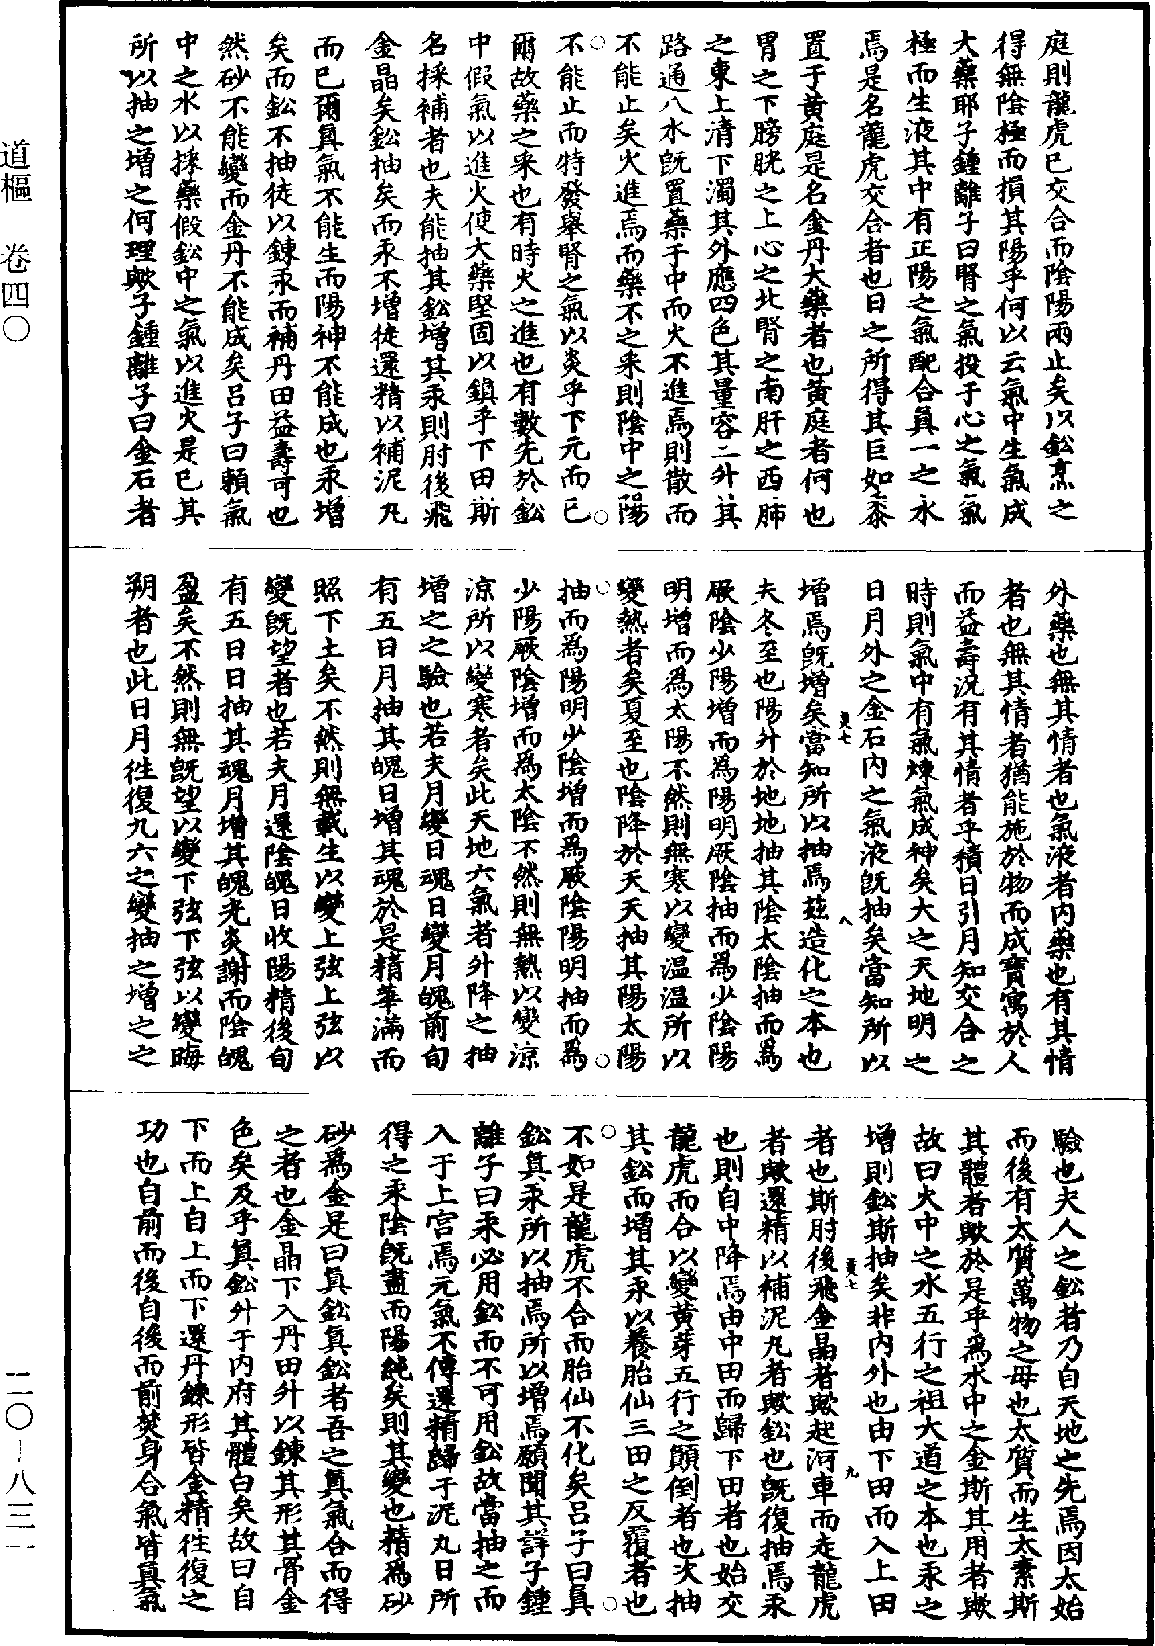 庭則龍虎已交合而陰陽兩止矣以鈆烹之
得無陰極而損其陽乎何以云氣中生氣成
大藥耶子鍾離子曰腎之氣投于心之氣氣
極而生液其中有正陽之氣配合眞一之水
焉是名龍虎交合者也日之所得其巨如黍
置于黃庭是名金丹大藥者也黃庭者何也
胃之下膀胱之上心之北腎之南肝之西肺
之東上清下濁其外應四色其量容二升其
路通八水旣置藥于中而火不進焉則散而
不能止矣火進焉而藥不之采則陰中之陽
不能止而特發舉腎之氣以炎乎下元而已
爾故藥之采也有時火之進也有數先於鈆
中假氣以進火使大藥堅固以鎮乎下田斯
名採補者也夫能抽其鈆增其汞則肘後飛
金晶矣鈆抽矣而汞不增徒還精以補泥丸
而已爾眞氣不能生而陽神不能成也汞增
矣而鈆不抽徒以鍊汞而補丹田益壽可也
然砂不能變而金丹不能成矣吕子曰賴氣
中之水以採藥假鈆中之氣以進火是已其
所以抽之增之何理歟子鍾離子曰金石者
外藥也無其情者也氣液者内藥也有其情
者也無其情者猶能施於物而成寶寓於人
而益壽況有其情者乎積日引月知交合之
時則氣中有氣煉氣成神矣大之天地明之
日月外之金石内之氣液旣抽矣當知所以
增焉旣增矣當知所以抽焉茲造化之本也
夫冬至也陽升於地地抽其陰太陰抽而爲
厥陰少陽增而爲陽明厥陰抽而爲少陰陽
明增而爲太陽不然則無寒以變温温所以
變熱者矣夏至也陰降於天天抽其陽太陽
抽而爲陽明少陰增而爲厥陰陽明抽而爲
少陽厥陰增而爲太陰不然則無熱以變涼
涼所以變寒者矣此天地六氣者升降之抽
增之之驗也若夫月變日魂日變月魄前旬
有五日月抽其魄日增其魂於是精華滿而
照下土矣不然則無載生以變上弦上弦以
變旣望者也若夫月還陰魄日收陽精後旬
有五日日抽其魂月增其魄光炎謝而陰魄
盈矣不然則無旣望以變下弦下弦以變晦
朔者也此日月往復九六之變抽之增之之
驗也夫人之鈆者乃自天地之先焉因太始
而後有太質萬物之母也太質而生太素斯
其體者歟於是乎爲水中之金斯其用者歟
故曰火中之水五行之祖大道之本也汞之
增則鈆斯抽矣非内外也由下田而入上田
者也斯肘後飛金晶者歟起河車而走龍虎
者歟還精以補泥丸者歟鈆也旣復抽焉汞
也則自中降焉由中田而歸下田者也始交
龍虎而合以變黃芽五行之顚倒者也次抽
其鈆而增其汞以養胎仙三田之反覆者也
不如是龍虎不合而胎仙不化矣吕子曰眞
鈆眞汞所以抽焉所以增焉願聞其詳子鍾
離子曰汞必用鈆而不可用鈆故當抽之而
入于上宫焉元氣不傳還精歸于泥丸日所
得之汞陰旣盡而陽純矣則其變也精爲砂
砂爲金是曰眞鈆眞鈆者吾之眞氣合而得
之者也金晶下入丹田升以鍊其形其骨金
色矣及乎眞鈆升于内府其體白矣故曰自
下而上自上而下還丹鍊形皆金精往復之
功也自前而後自後而前焚身合氣皆眞氣
道樞 卷四〇
二〇—八三一